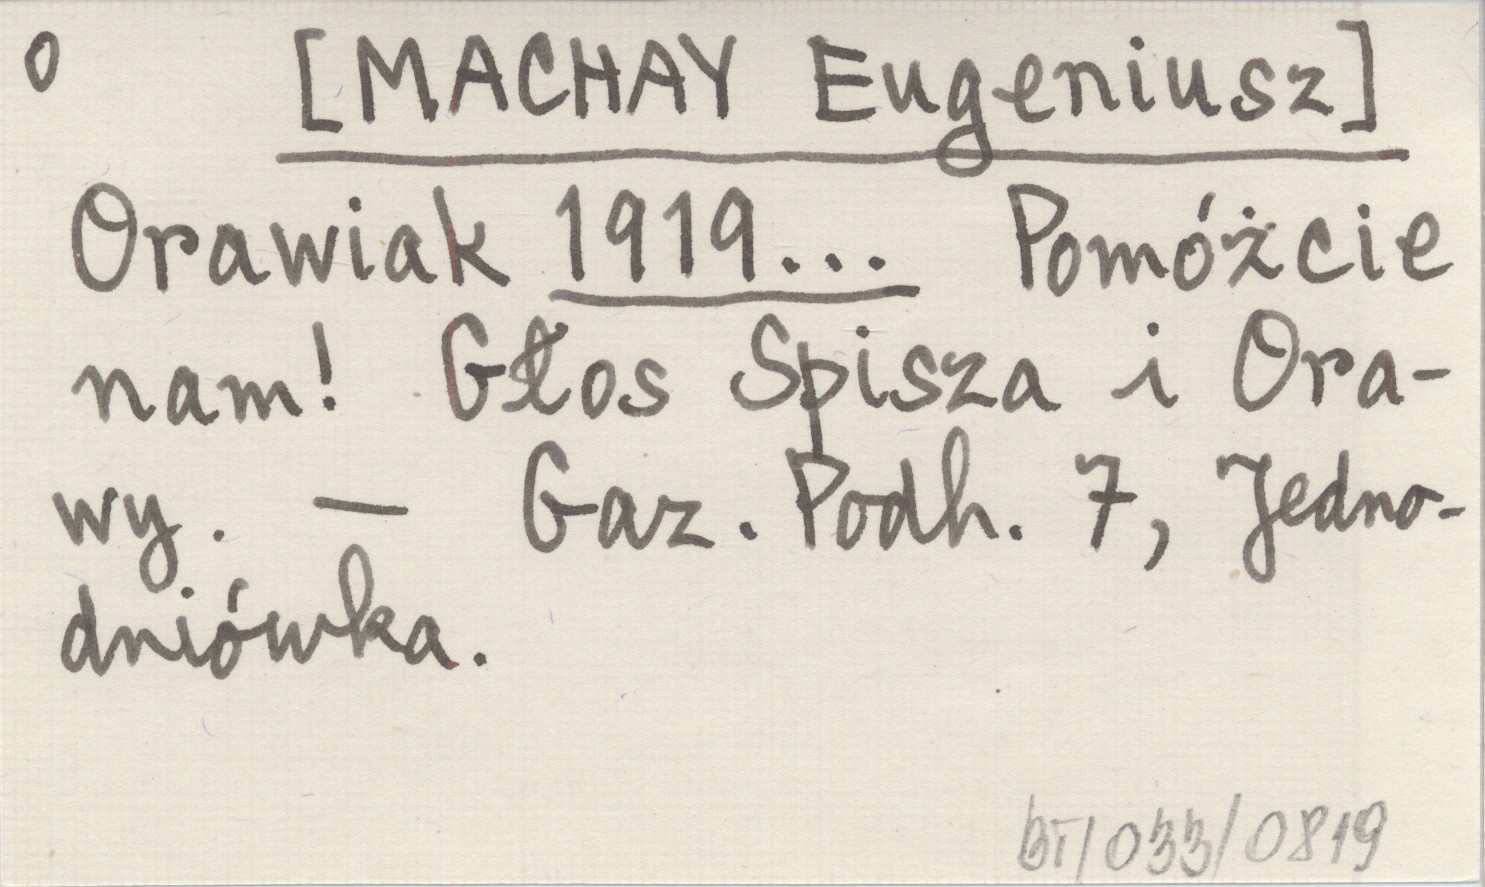 O [MACHAY Eugeniusz]
Orawiak 1919... Pomóżcie
nam! Głos Spisza i Ora-
wy. — Gaz. Podh. 7, Jedno-
dniówka.
BT/033/0819